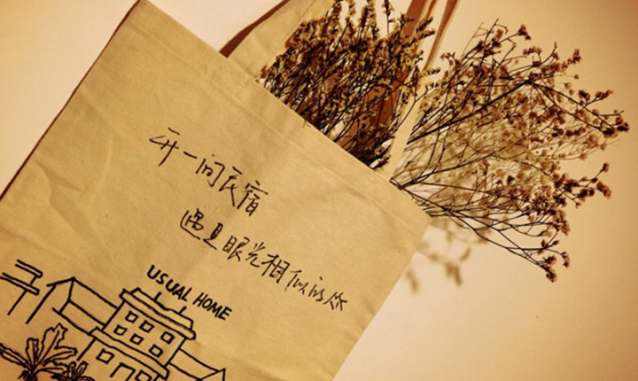 开一间民宿
遇见眼光相似的你
USUAL HOME